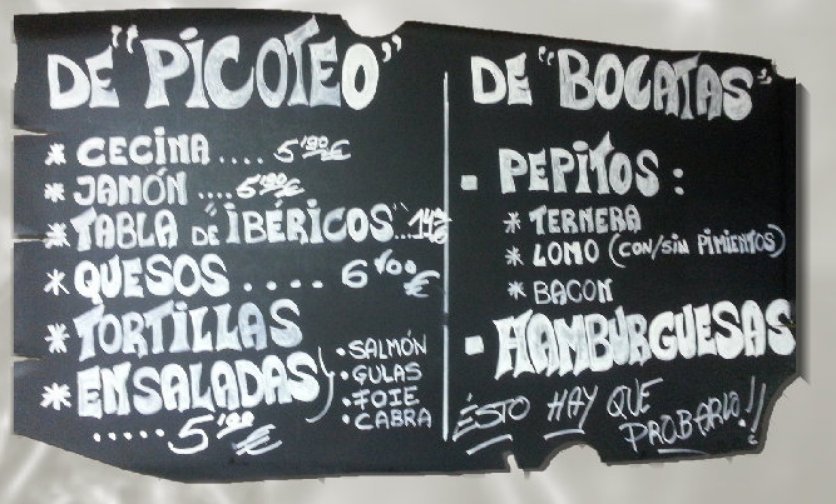 DE "PICOTEO"
* CECINA .... 5'90€
* JAMÓN .... 5'90€
* TABLA DE "IBÉRICOS"...14€
* QUESOS .... 6'00€
* TORTILLAS
* ENSALADAS
• SALMÓN
• GULAS
• FOIE
• CABRA
..... 5'90€
DE "BOCATAS"
▪ PEPITOS :
* TERNERA
* LOMO (CON/SIN PIMIENTOS)
* BACON
▪ HAMBURGUESAS
ÉSTO HAY QUE
PROBARLO!!